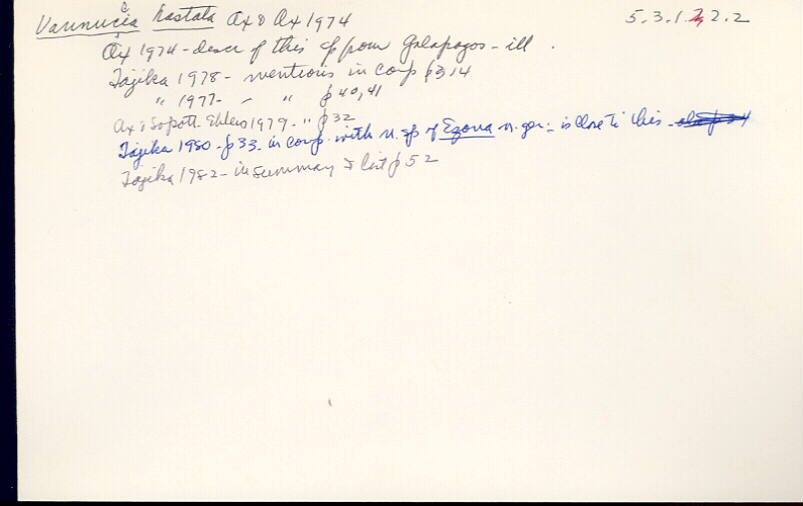 Vannuccia hastata Ax & Ax 1974 5.3.1.2.2.2
Ax 1974 - descr of this sp from Galapagos - ill.
Tajika 1978 - mentions in comp p 314
" 1977 - " " p 40, 41
Ax & Sopott-Ehlers 1979 - " p 32
Tajika 1980 - p 33 in comp. with n. sp of Ezona n. gen - is close to this -
Tajika 1982 - in summary & list p 52